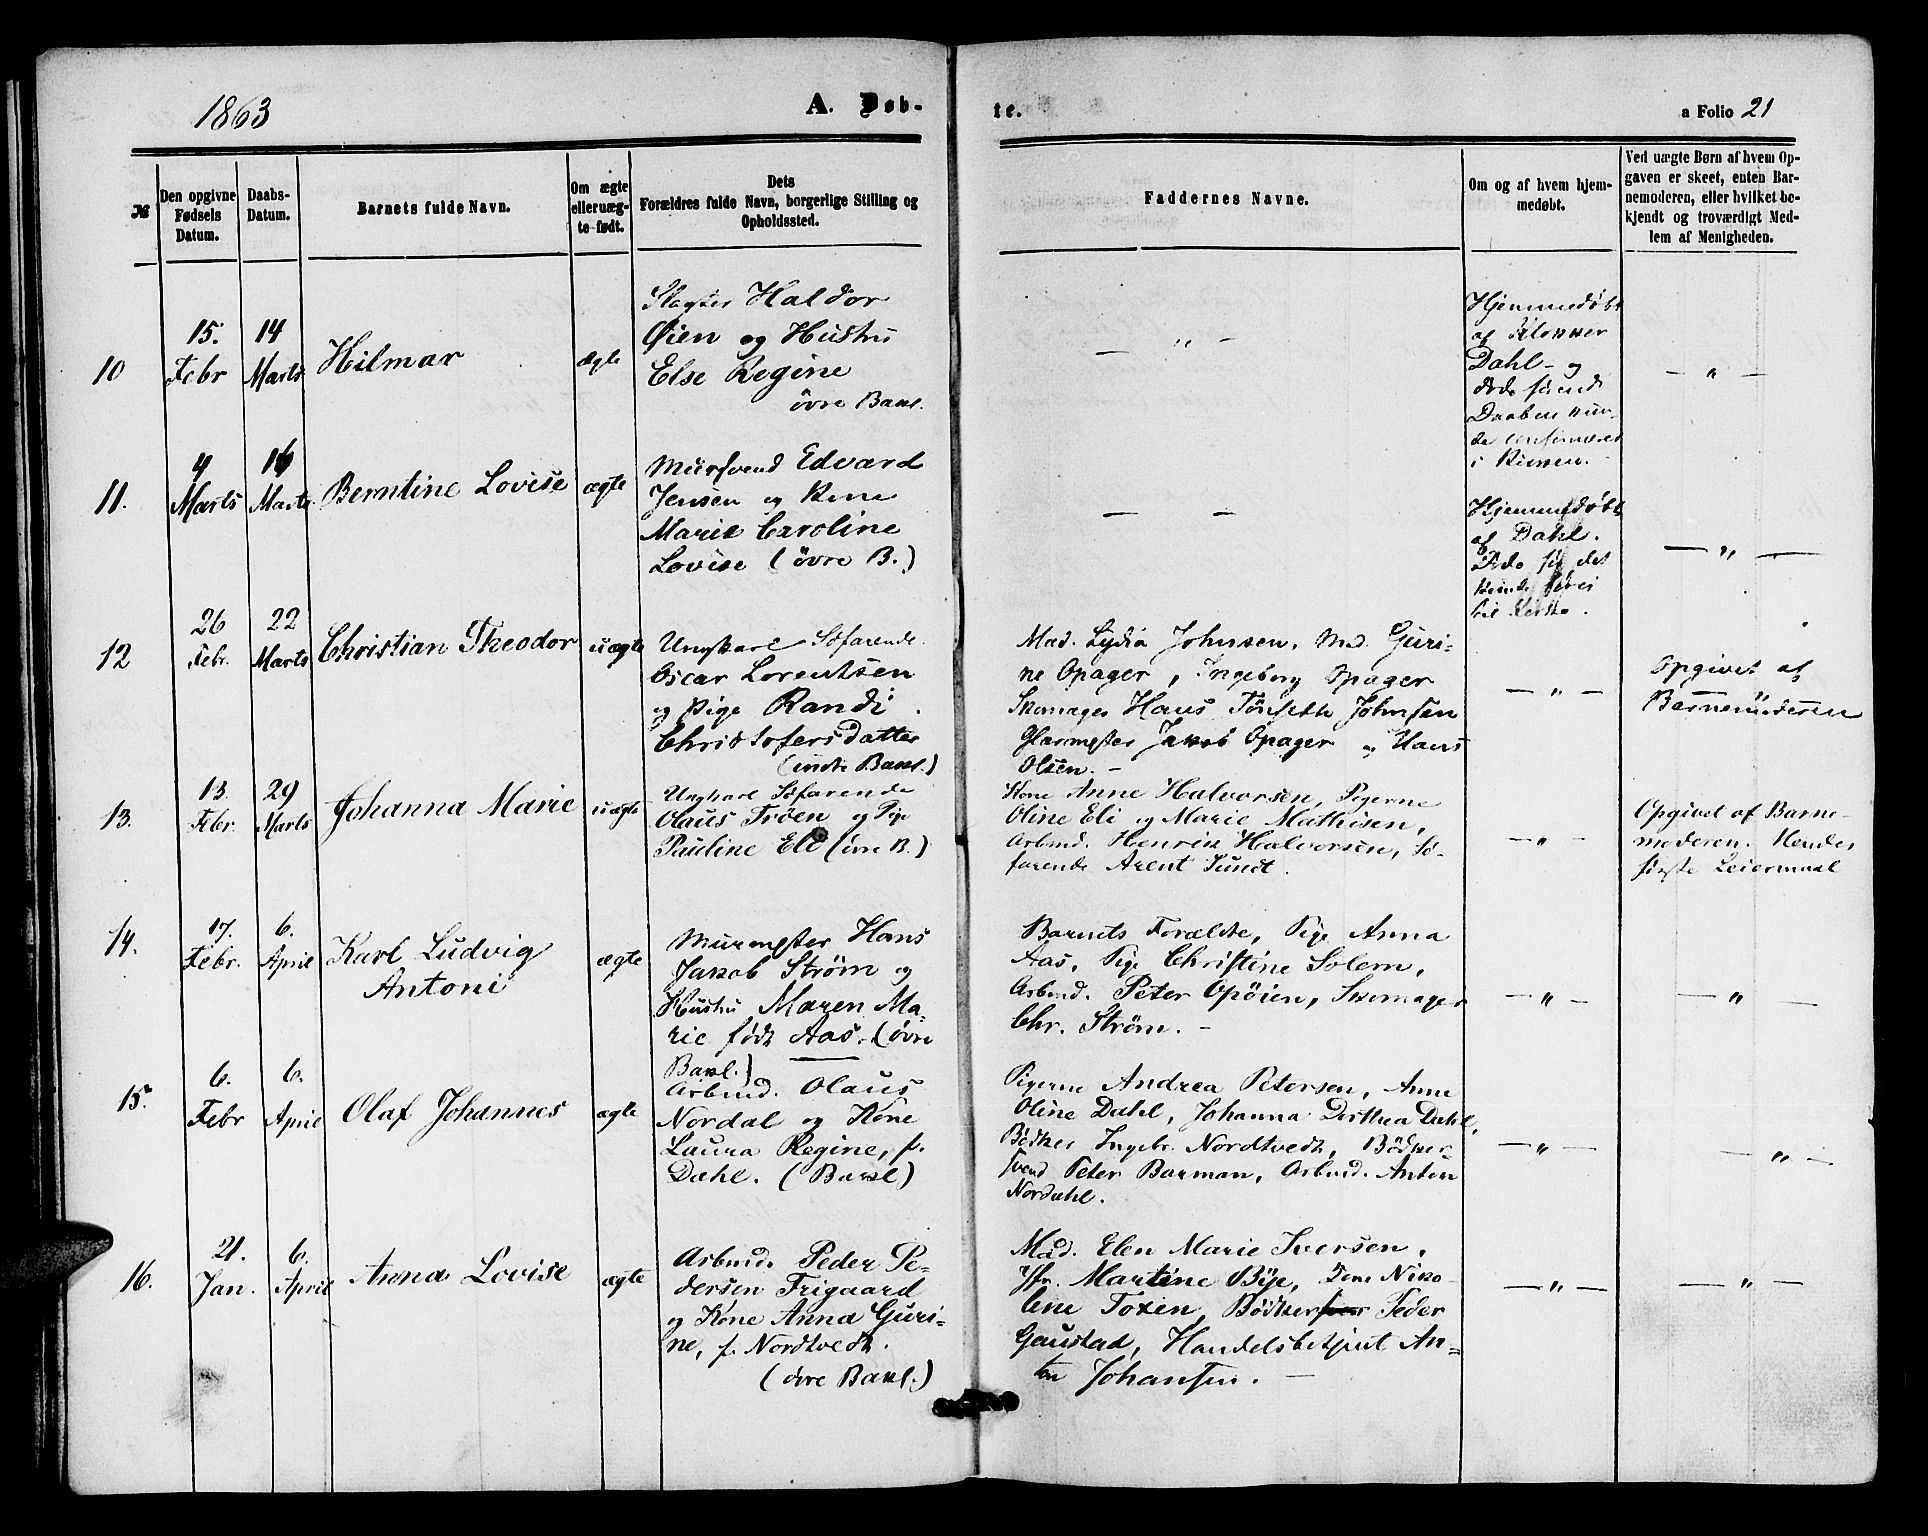 1863
A. Døb-
te.
a Folio 21
№
Den opgivne
Fødsels
Datum.
Daabs-
Datum.
Barnets fulde Navn.
Om ægte
elleruæg-
te født.
Dets
Forældres fulde Navn, borgerlige Stilling og
Opholdssted.
Faddernes Navne.
Om og af hvem hjem-
medøbt.
Ved uægte Børn af hvem Op-
gaven er skeet, enten Bar-
nemoderen, eller hvilket be-
kjendt og troværdigt Med-
lem af Menigheden.
10
15.
Febr
14
Marts
Hilmar
ægte
Slagter Haldor
Øien og Hustru
Else Regine
övre Bakl.
— " —
Hjemmedøbt
af Klokker
Dahl - og
døde førend
Daaben kun-
de confirmeres
i Kirken.
— " —
11.
4
Marts
16
Marts
Berntine Lovise
ægte
Mursvend Edvard
Jensen og Kone
Marie Caroline
Lovise (övre B.)
— —
Hjemmedøbt
af Dahl.
Døde før det
kunde føres
til Kirke.
— " —
12
26
Febr.
22
Marts
Christian Theodor
uægte
Ungkarl Søfarende
Oscar Lorentsen
og Pige Randi
Christofersdatter
(indre Bakl.)
Mad. Lydia Johnsen, Md. Guri-
ne Opager, Ingeborg Opager
Skomager Hans Tönseth Johnsen
Glarmester Jakob Opager og Hans
Olsen. -
— " —
Opgivet af
Barnemoderen
13.
13.
Febr.
29
Marts
Johanna Marie
uægte
Ungkarl Søfarende
Olaus Trøen og Pige
Pauline Eli (övre B.)
Kone Anne Halvorsen, Pigerne
Oline Eli og Marie Mathisen,
Arbmd. Henrik Halvorsen, Sø-
farende Arent Sundt.
— " —
Opgivet af Barne-
moderen. Hendes
første Leiermaal
14.
17.
Febr.
6.
April
Karl Ludvig
Antoni
ægte
Murmester Hans
Jakob Strøm og
Hustru Maren Ma-
rie født Aas. (övre
Bakl.)
Barnets Forældre, Pige Anna
Aas, Pige Christine Solem,
Arbmd. Peter Opöien, Skomager
Chr. Strøm. -
— " —
— " —
15.
6.
Febr
6.
April
Olaf Johannes
ægte
Arbmd. Olaus
Nordal og Kone
Laura Regine, f.
Dahl. (Bakl)
Pigerne Andrea Petersen, Anne
Oline Dahl, Johanna Dorthea Dahl,
Bödker Ingebr. Nordtvedt, Bödker-
svend Peter Barman, Arbmd. Anton
Nordahl.
— " —
— " —
16.
21.
Jan.
6.
April
Anna Lovise
ægte
Arbmd. Peder Pe-
dersen Frigaard
og Kone Anna Guri-
ne, f. Nordtvedt.
(övre Bakl.)
Mad. Elen Marie Iversen,
Jfr. Martine Bye, Kone Niko-
line Toxen, Bödker Peder
Gaustad, Handelsbetjent An-
ton Johansen. -
— " —
— " —